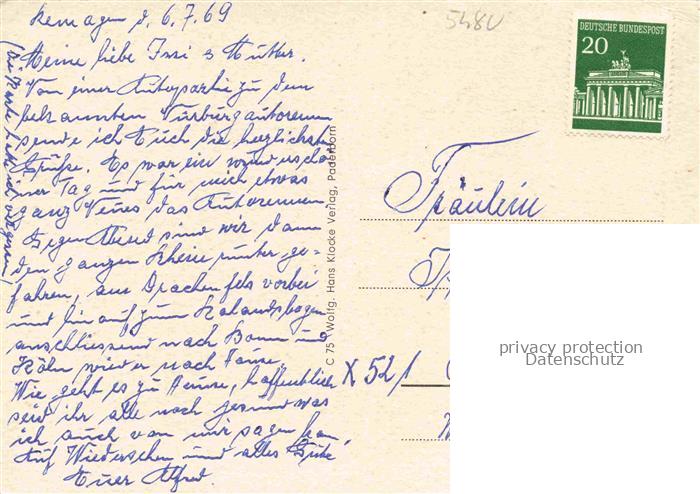 Remagen d. 6.7.69
Meine liebe Issi & Mutter.
Von einer Autopartie zu dem
bekannten Nürburgautorennen
sende ich Euch die herzlichsten
Grüße. Es war ein wunderschö
iner Tag und für mich etwas
ganz Neues das Autorennen.
Gegen Abend sind wir dann
den ganzen Rhein runter ge-
fahren, am Drachenfels vorbei
und hinauf zum Rolandsbogen
anschliessend nach Bonn und
Köln wieder nach Hause.
Wie geht es zu Hause, hoffentlich
seid ihr alle noch gesund was
ich auch von mir sagen kann.
Auf Wiedersehen und alles Gute
Euer Alfred.
(Die Karte hatte ich vergessen)
C 75 Wolfg. Hans Klocke Verlag, Paderborn
X 52/1
5480
DEUTSCHE BUNDESPOST
20
Fräulein
privacy protection
Datenschutz